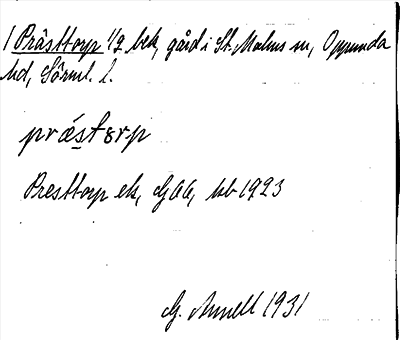 1 Prästtorp 1/2 bek, gård i St. Malms sn, Oppunda
hd, Sörml. l.
præstɷrp
Presttorp ek, GEK, kb 1923
G. Annell 1931